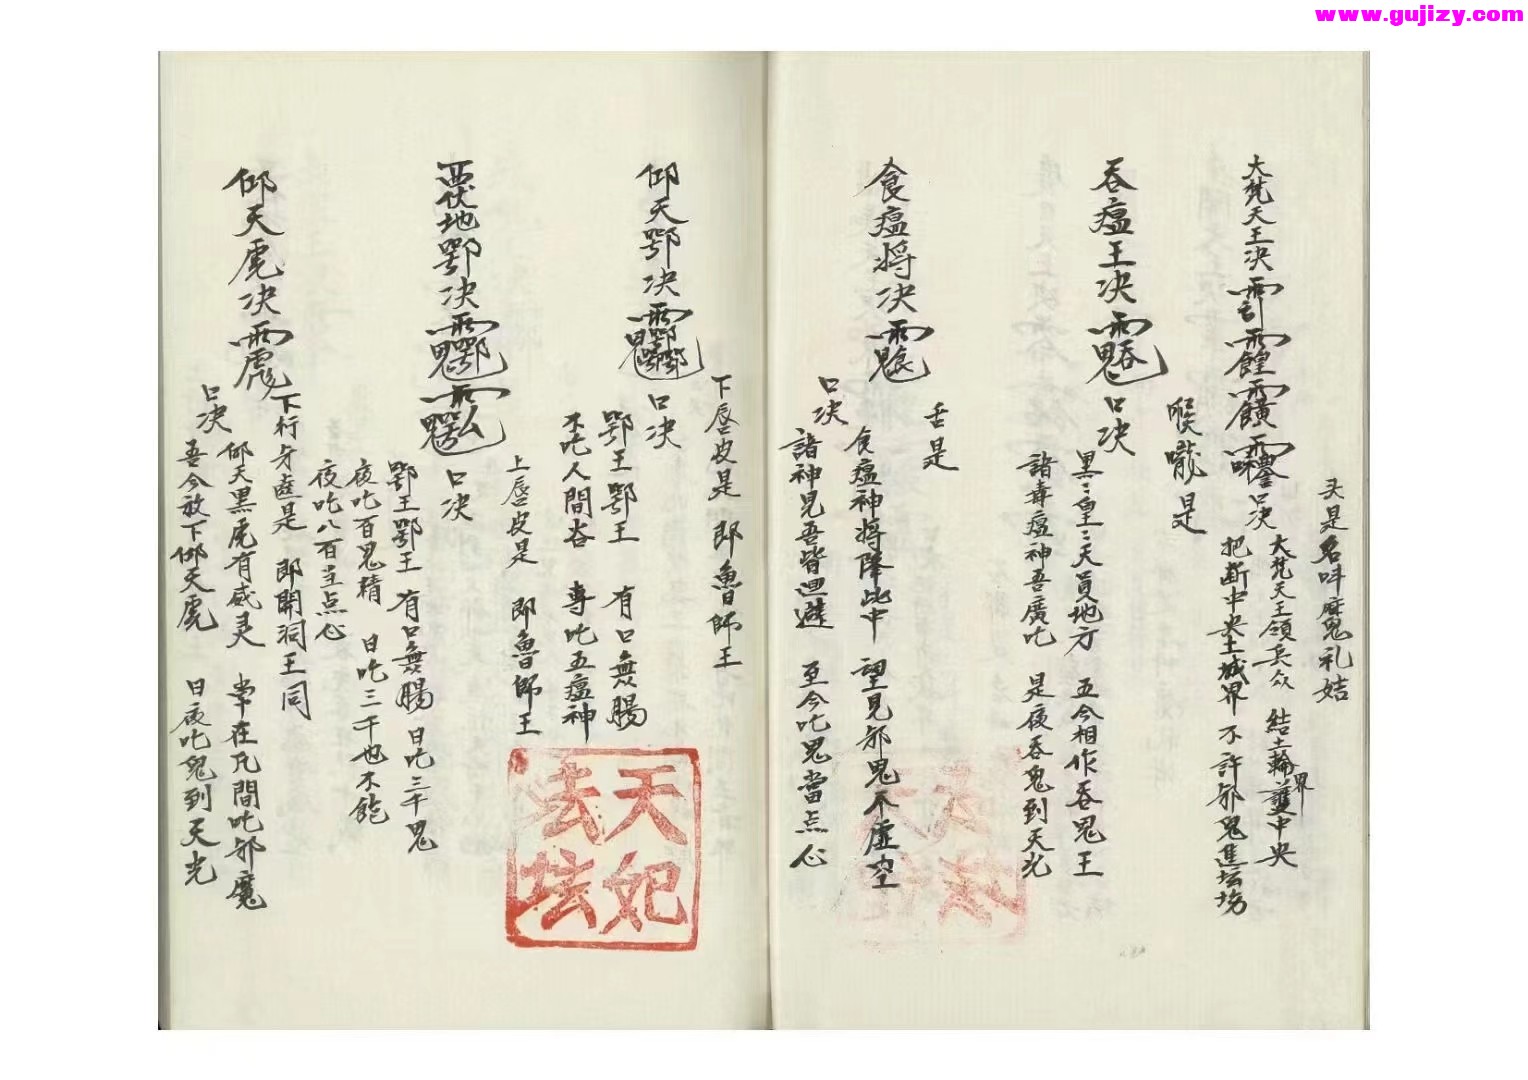 www.gujizy.com
头是名叫麽鬼礼姞
大梵天王决
口决
大梵天王領兵众 結土輪界護中央
把断中央土城界 不許邪鬼進坛塲
喉嚨是
吞瘟王决
口决
黑:皇:天員地方 五今相作吞鬼王
諸毒瘟神吾廣吃 是夜吞鬼到天光
舌是
食瘟将决
口决
食瘟神将降此中 望見邪鬼不虚空
諸神見吾皆迴避 至今吃鬼當点心
下唇皮是 即魯師王
仰天鄂决
口决
鄂王鄂王 有口無腸
不吃人間谷 專吃五瘟神
上唇皮是 即魯師王
覆地鄂决
口决
鄂王鄂王 有口無腸 日吃三千鬼
夜吃百鬼精 日吃三千也不飽
夜吃八百当点心
下行牙齒是 即開洞王同
仰天虎决
口决
仰天黑虎有威灵 常在凡間吃邪魔
吾今放下仰天虎 日夜吃鬼到天光
天妃
法坛